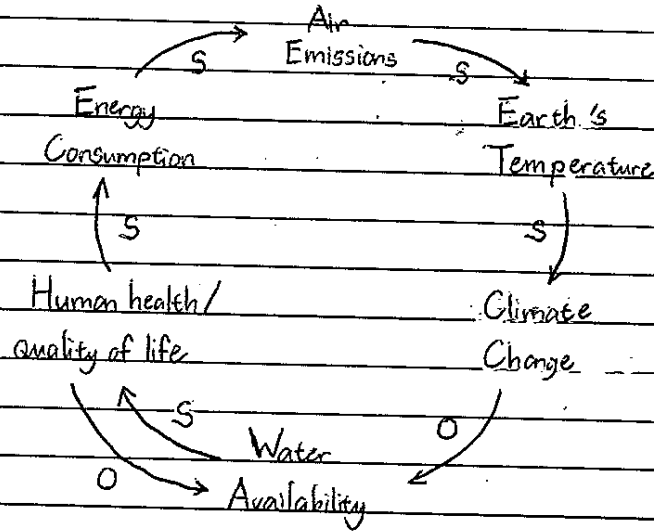 Air
Emissions
S
S
Energy
Consumption
Earth's
Temperature
S
S
Human health/
quality of life
Climate
Change
S
O
O
Water
Availability